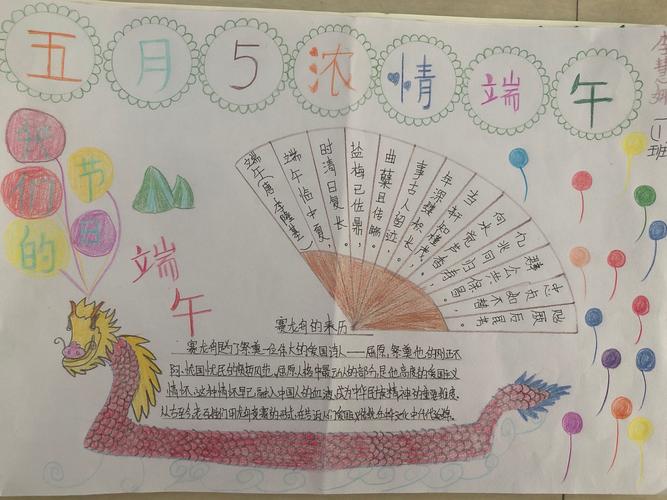 五月5浓情端午
班
我们的
节日
端午
端午 唐·李隆基
端午临中夏,
时清日复长。
盐梅已佐鼎,
曲糵且传觞。
事古人留迹,
年深缕积长。
当轩知槿茂,
向水觉芦香。
亿兆同归寿,
保昌。
忠贞如不替,
贻厥后昆
赛龙舟的来历
赛龙舟是为了祭奠一位伟大的爱国诗人——屈原,祭奠他的刚正不
阿、忧国忧民的高尚风范。屈原人格中最动人的部分,是他高度的爱国主义
情怀,这种情怀早已融入中国人的血液,成为中华民族精神的重要维度。
从古至今,老百姓们用龙舟竞赛的形式,在告诉人们爱国主义情怀在中华文化中代代